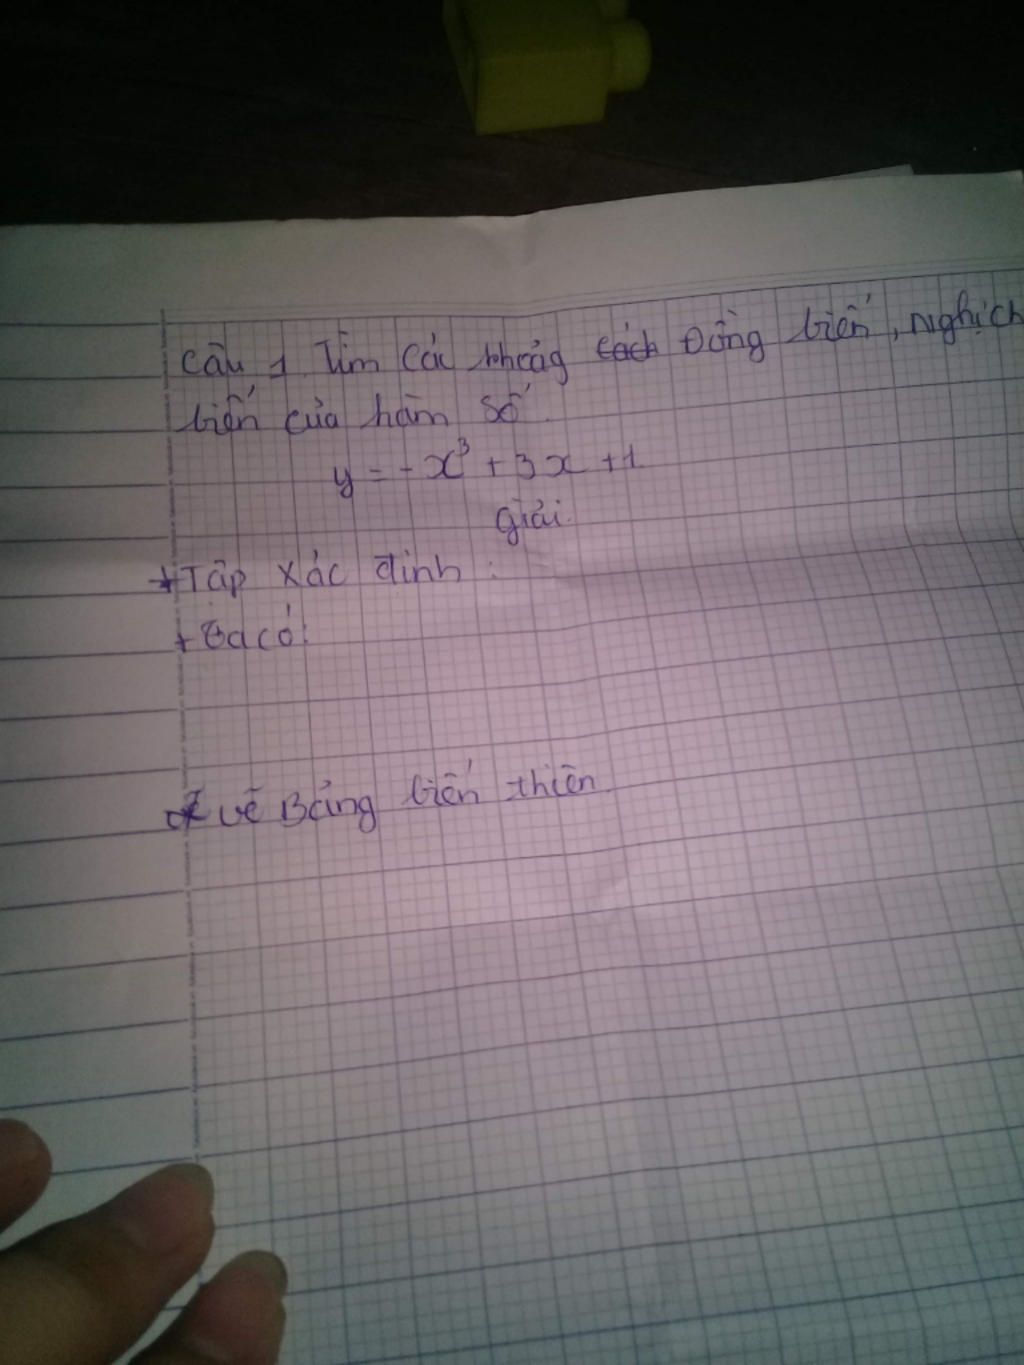 Câu 1 Tìm các khoảg cách Đồng biến, nghịch
biến của hàm số.
y = - x³ + 3x + 1
giải.
+ Tập xác định :
+ Ta có:
vẽ Bảng biến thiên.